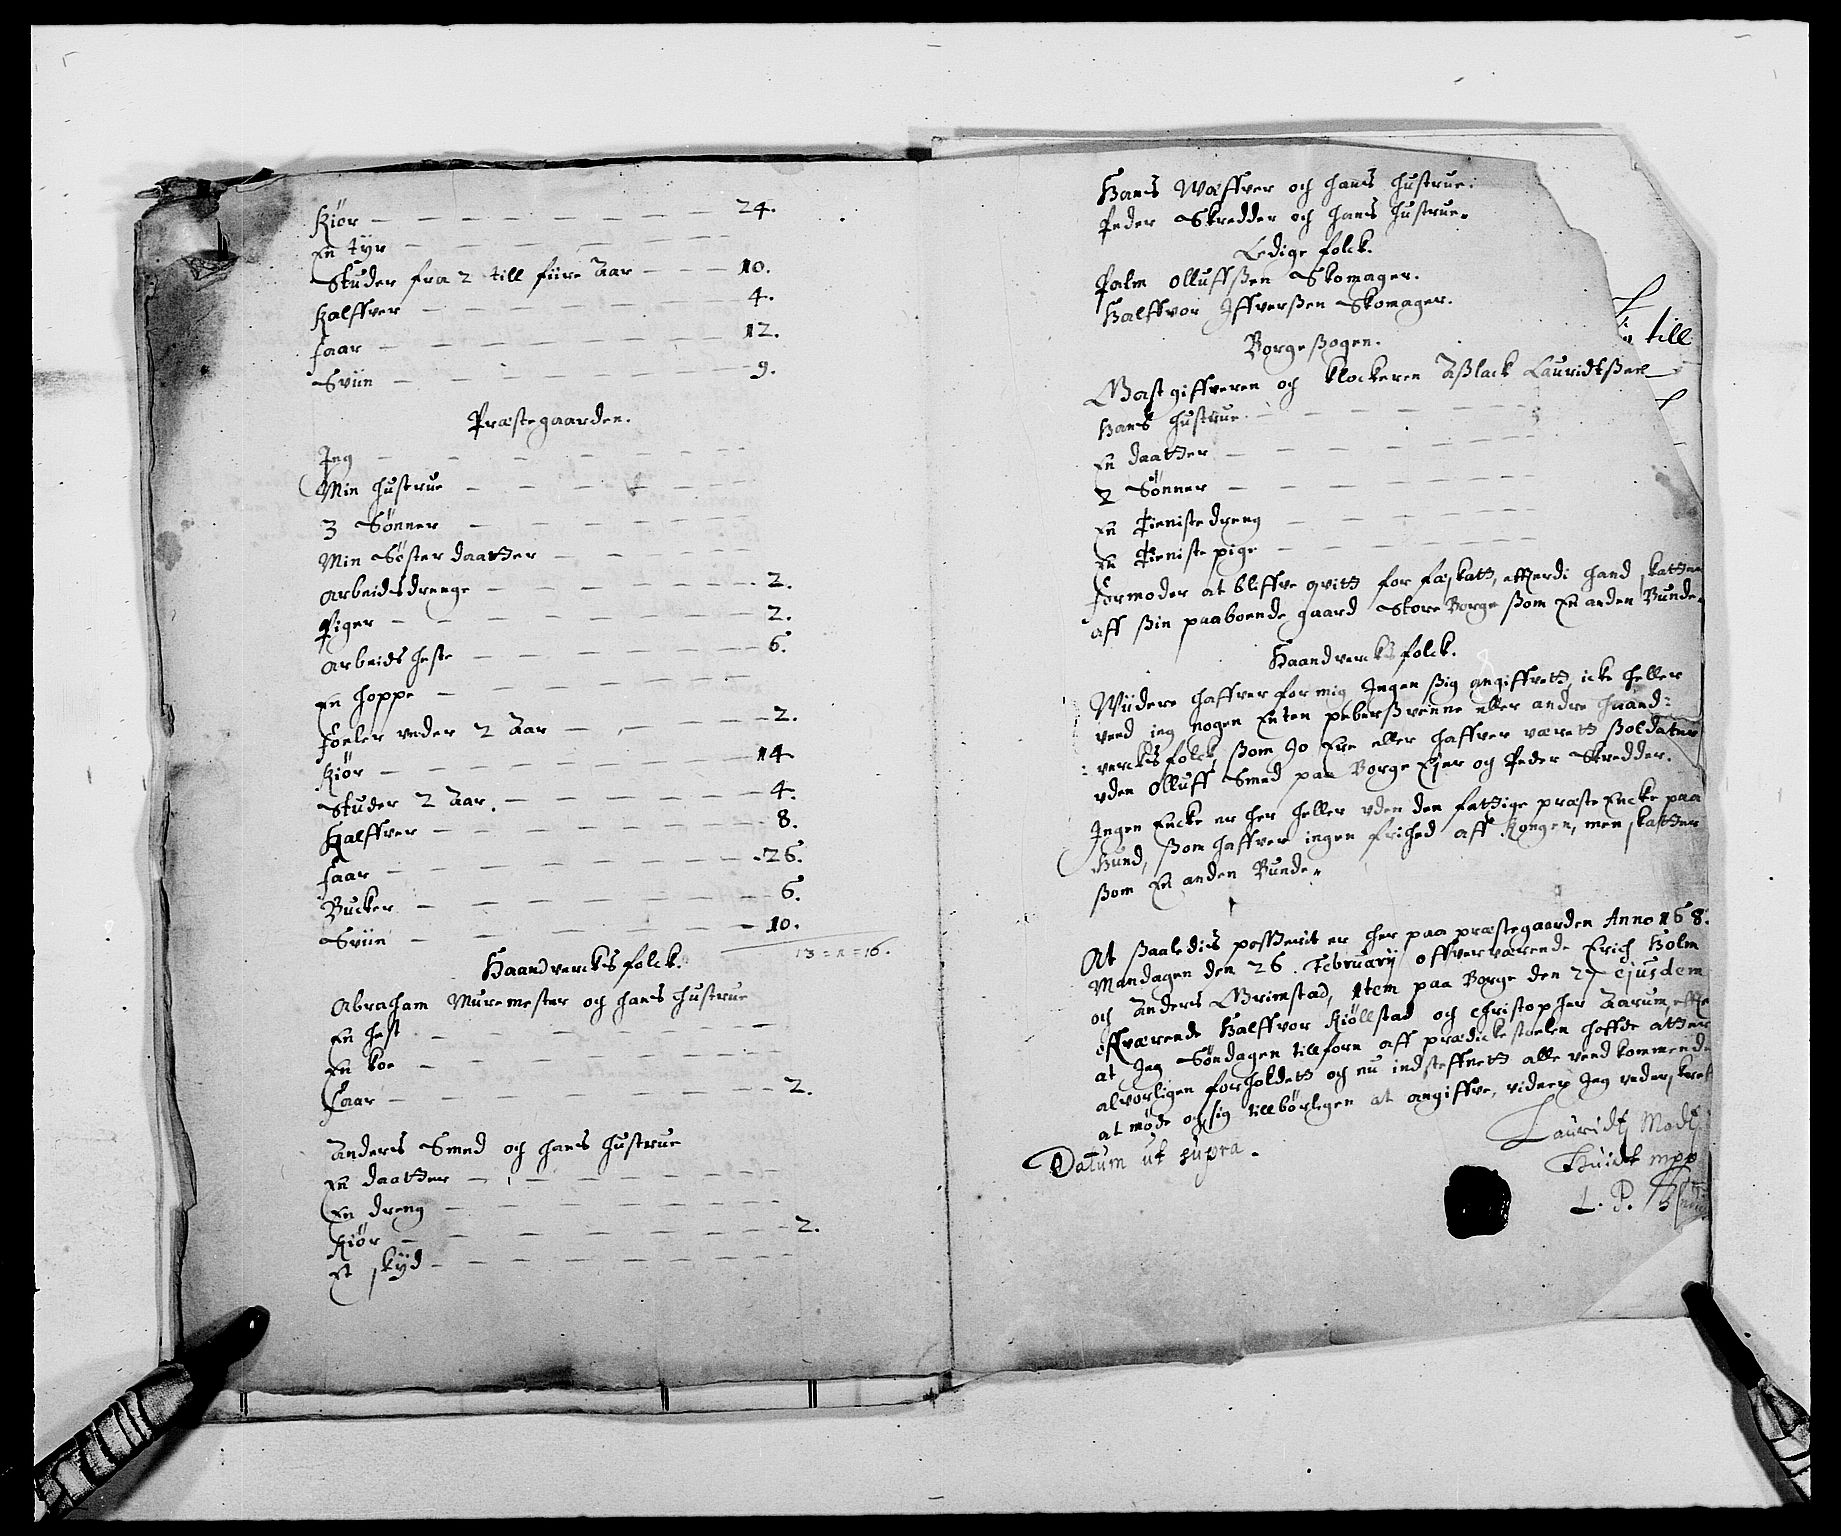 Kiör — — — — — — — — — 24.
En tyr — — — — — — — —
Studer fra 2 till fiire Aar — — — 10.
Kalffver — — — — — — — 4.
faar — — — — — — — — 12.
Sviin — — — — — — — — 9.
Præstegaarden.
Jeg — — — — — — — —
Min hustrue — — — — — —
3 Sönner — — — — — —
Min Söster daatter — — — — —
Arbeidsdrenge — — — — — — 2.
Piger — — — — — — — — 2.
Arbeids heste — — — — — — 6.
En hoppe — — — — — — —
Foeler under 2 Aar — — — — 2.
Kiör — — — — — — — — 14
Studer 2 Aar. — — — — — — 4.
Kalffver — — — — — — — 8.
faar — — — — — — — — 26.
Bucker — — — — — — — 6.
Sviin — — — — — — — — 10.
Haandvercksfolck.
13 = 2 = 16.
Abraham Muremester och hans hustrue
En hest — — — — — — —
En koe — — — — — — —
Faar — — — — — — — — 2.
Anders Smed och hans hustrue
En daatter — — — — — —
En dreng — — — — — —
Kiör — — — — — — — — 2.
Et skyd — — — — — — —
Hans Wæffver och hans hustrue.
Peder Skredder och hans hustrue.
Ledige folck.
Palm Olluffßen Skomager.
Halffvor Iffverßen Skomager.
Borge ßogen.
till
Giæstgiffveren och klockeren Aßlack Lauridtßen
Hans hustrue — — — — — —
En daatter — — — — — —
2 Sönner — — — — — —
En tienistedreng — — — — —
En tieniste pige — — — — —
formoder at bliffve qvitt for fæskatt, efterdi hand skatter
aff ßin paaboende gaard Store Borge ßom En anden Bunde.
Haandvercksfolck.
Wiidere haffver for mig Ingen ßig angiffvett, icke heller
veed ieg nogen Enten peberßvenne eller andre haand:
:vercksfolck, ßom Jo Ere eller haffver værett ßoldater
uden Olluff Smed paa Borge Ejer og Peder Skredder.
Ingen Encke er her heller uden den fattige præste Encke paa
Hund, ßom haffver ingen frihed aff Kongen, men skatter
ßom En anden Bunde.
At ßaaledis passerit er her paa præstegaarden Anno 168.
Mandagen den 26. February offverværende Erich Holm
och Anders Grimstad, Item paa Borge den 27 ejusdem
offværende Halffvor Kiöllstad och Christopher Aarum, effter
at Jeg Söndagen tillforn aff prædickestoelen hoffde atter
alvorligen forholdett og nu indsteffnett alle vedkommende
at möde og sig tillbörligen at angiffve, vidner Jeg underskrefven
Datum ut supra.
Lauridtz Madtz
Huidt mpp
L. P.